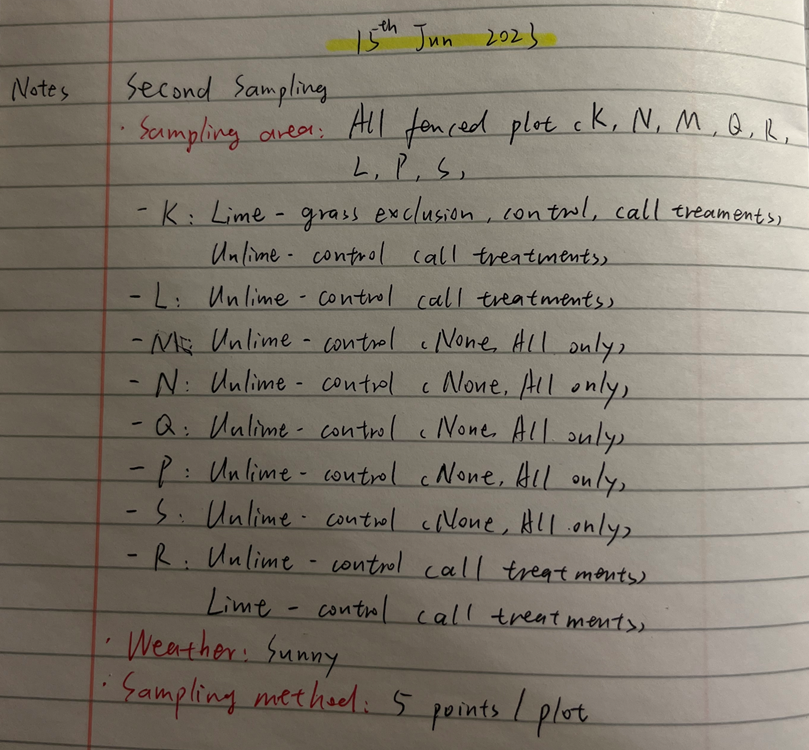 15th Jun 2023
Notes Second Sampling
· Sampling area: All fenced plot (K, N, M, Q, R,
L, P, S)
- K: Lime - grass exclusion, control, (all treaments)
Unlime - control (all treatments)
- L: Unlime - control (all treatments)
- M: Unlime - control (None, All only)
- N: Unlime - control (None, All only)
- Q: Unlime - control (None, All only)
- P: Unlime - control (None, All only)
- S: Unlime - control (None, All only)
- R: Unlime - control (all treatments)
Lime - control (all treatments)
· Weather: Sunny
· Sampling method: 5 points / plot